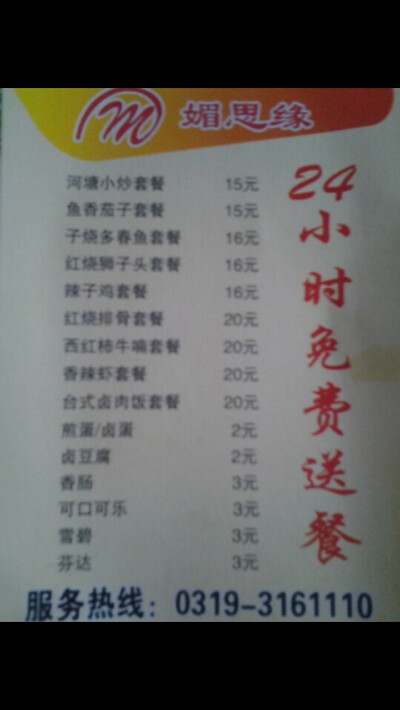 m 媚思缘
河塘小炒套餐 15元
鱼香茄子套餐 15元
子烧多春鱼套餐 16元
红烧狮子头套餐 16元
辣子鸡套餐 16元
红烧排骨套餐 20元
西红柿牛喃套餐 20元
香辣虾套餐 20元
台式卤肉饭套餐 20元
煎蛋/卤蛋 2元
卤豆腐 2元
香肠 3元
可口可乐 3元
雪碧 3元
芬达 3元
24小时免费送餐
服务热线：0319-3161110